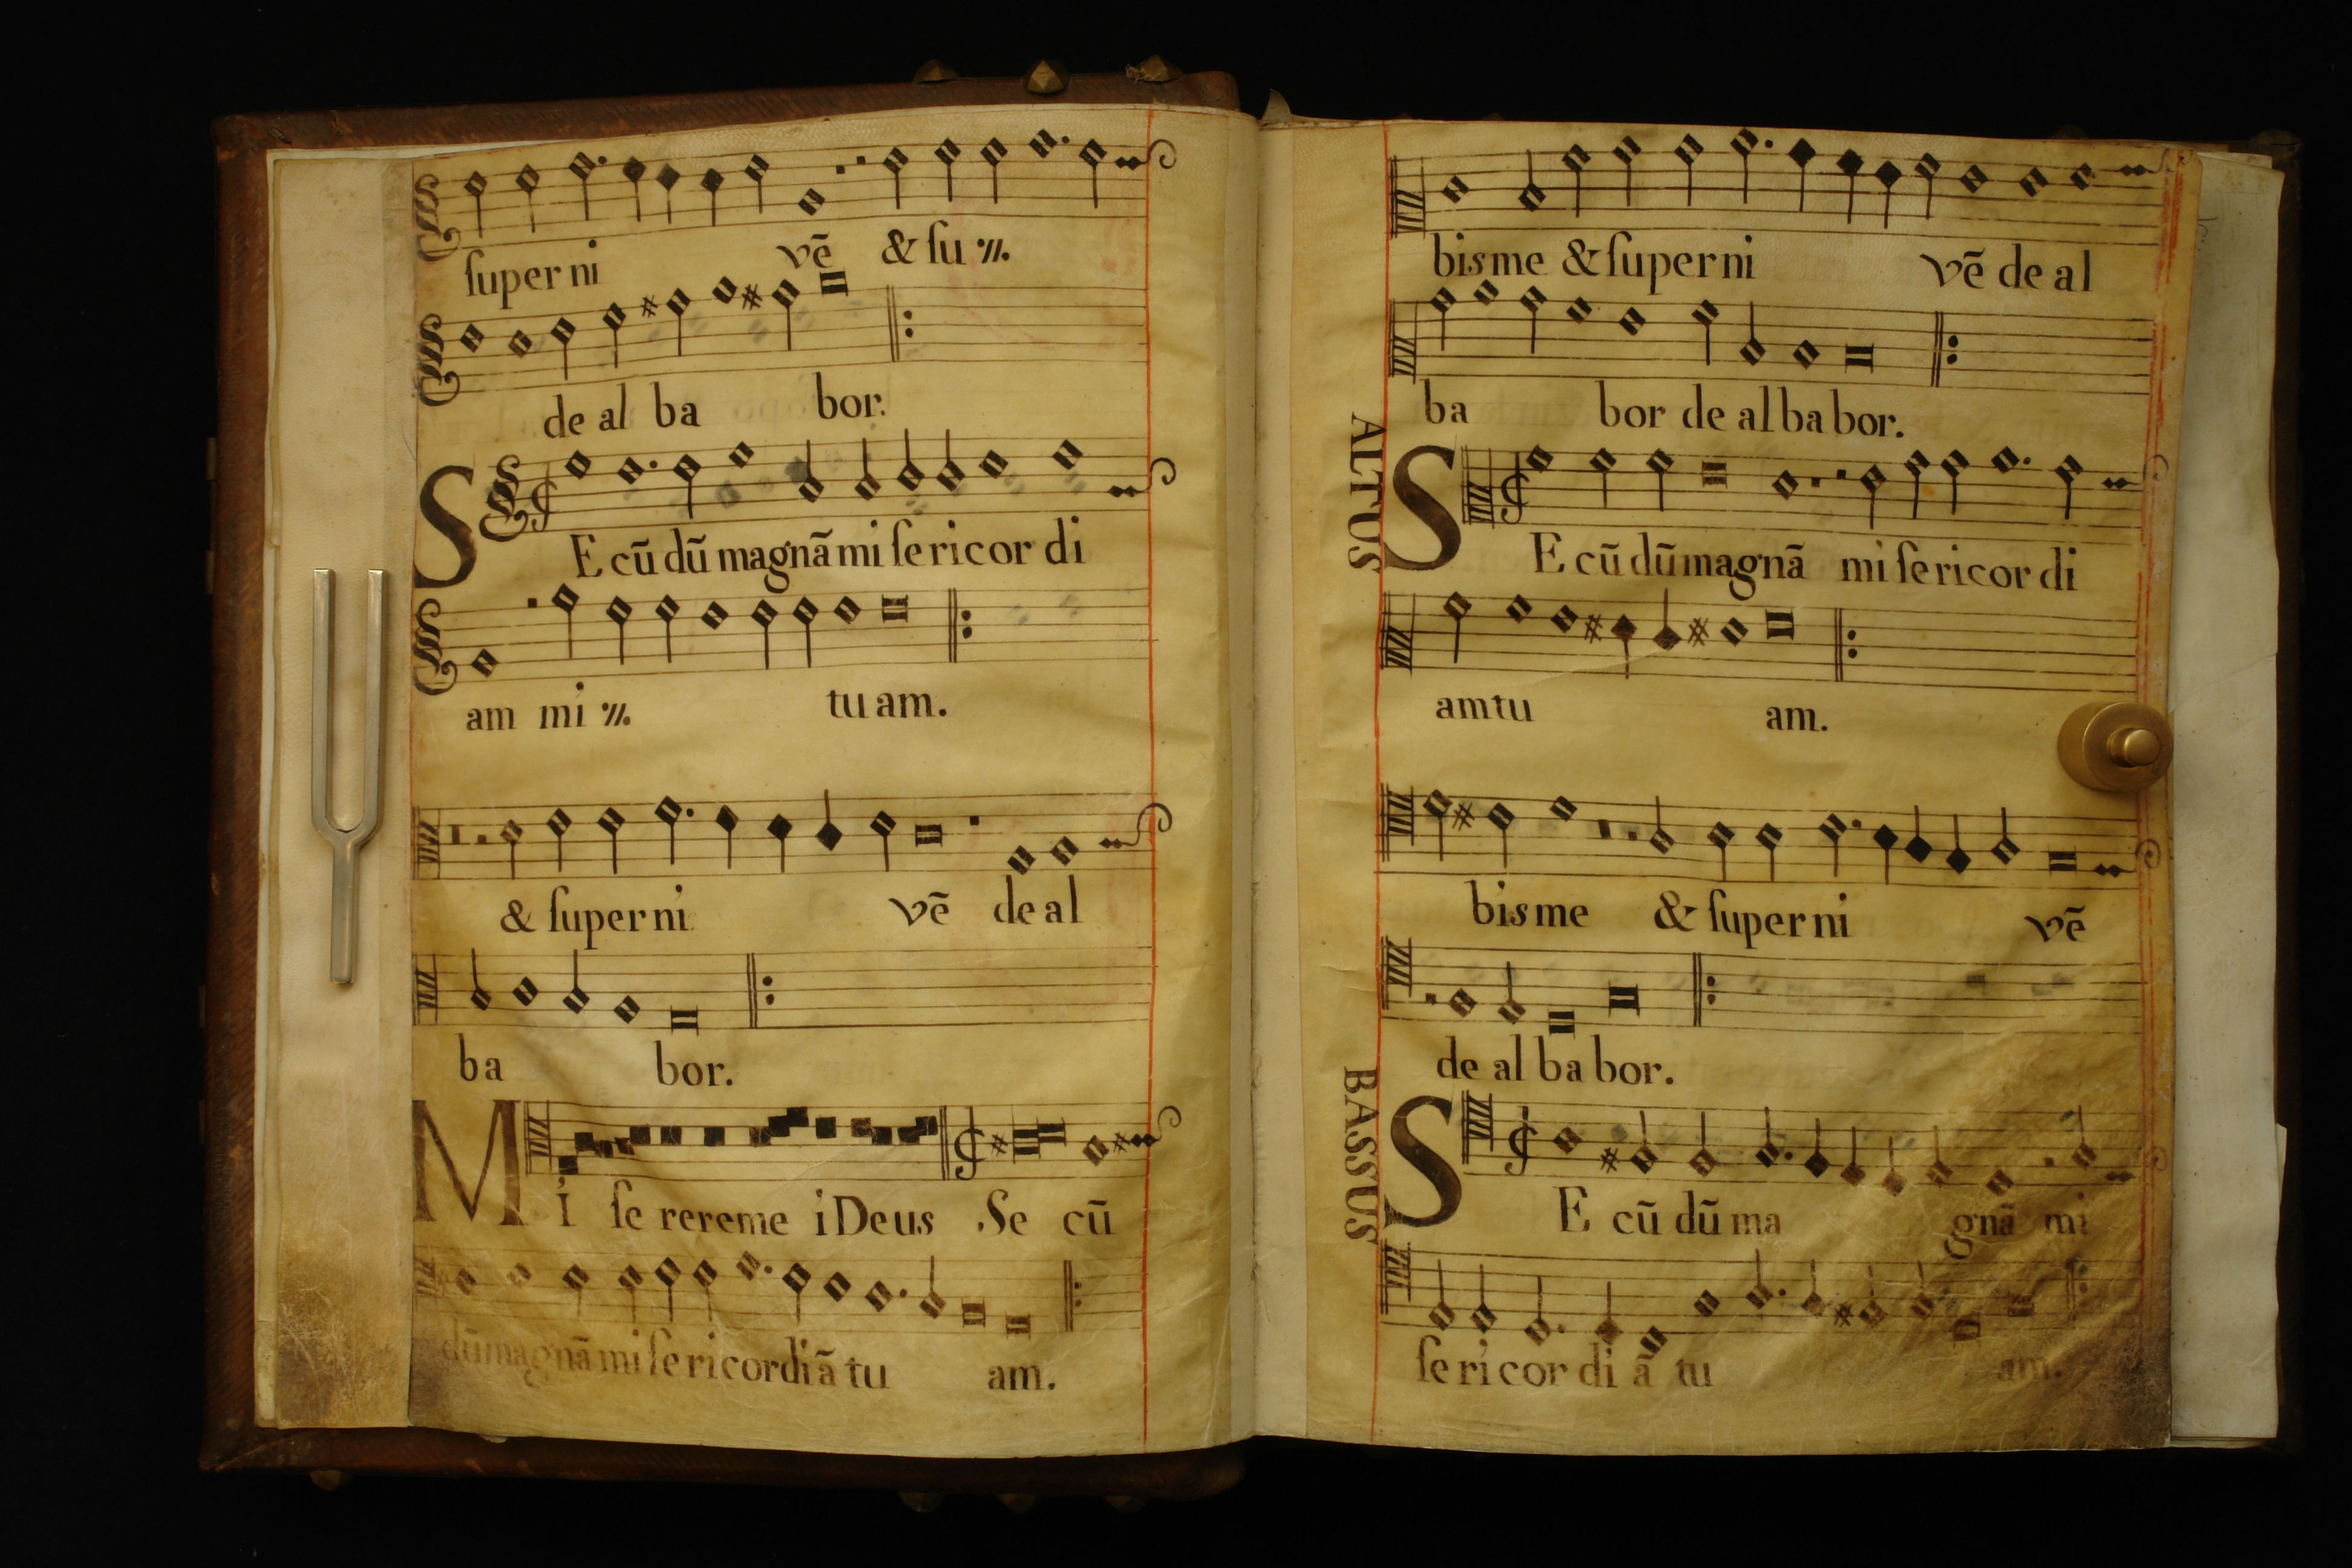 ſuper ni vē & ſu ·//.
de al ba bor.
SE cū dū magnā mi ſe ricor di
am mi ·//. tu am.
& ſuper ni vē de al
ba bor.
MI ſe rereme i Deus Se cū
dū magnā mi ſe ri cordi ā tu am.
bis me & ſuper ni vē de al
ba bor de al ba bor.
ALTUS
SE cū dū magnā mi ſe ricor di
am tu am.
bis me & ſuper ni vē
de al ba bor.
BASSUS
SE cū dū ma gnā mi
ſe ri cor di ā tu am.